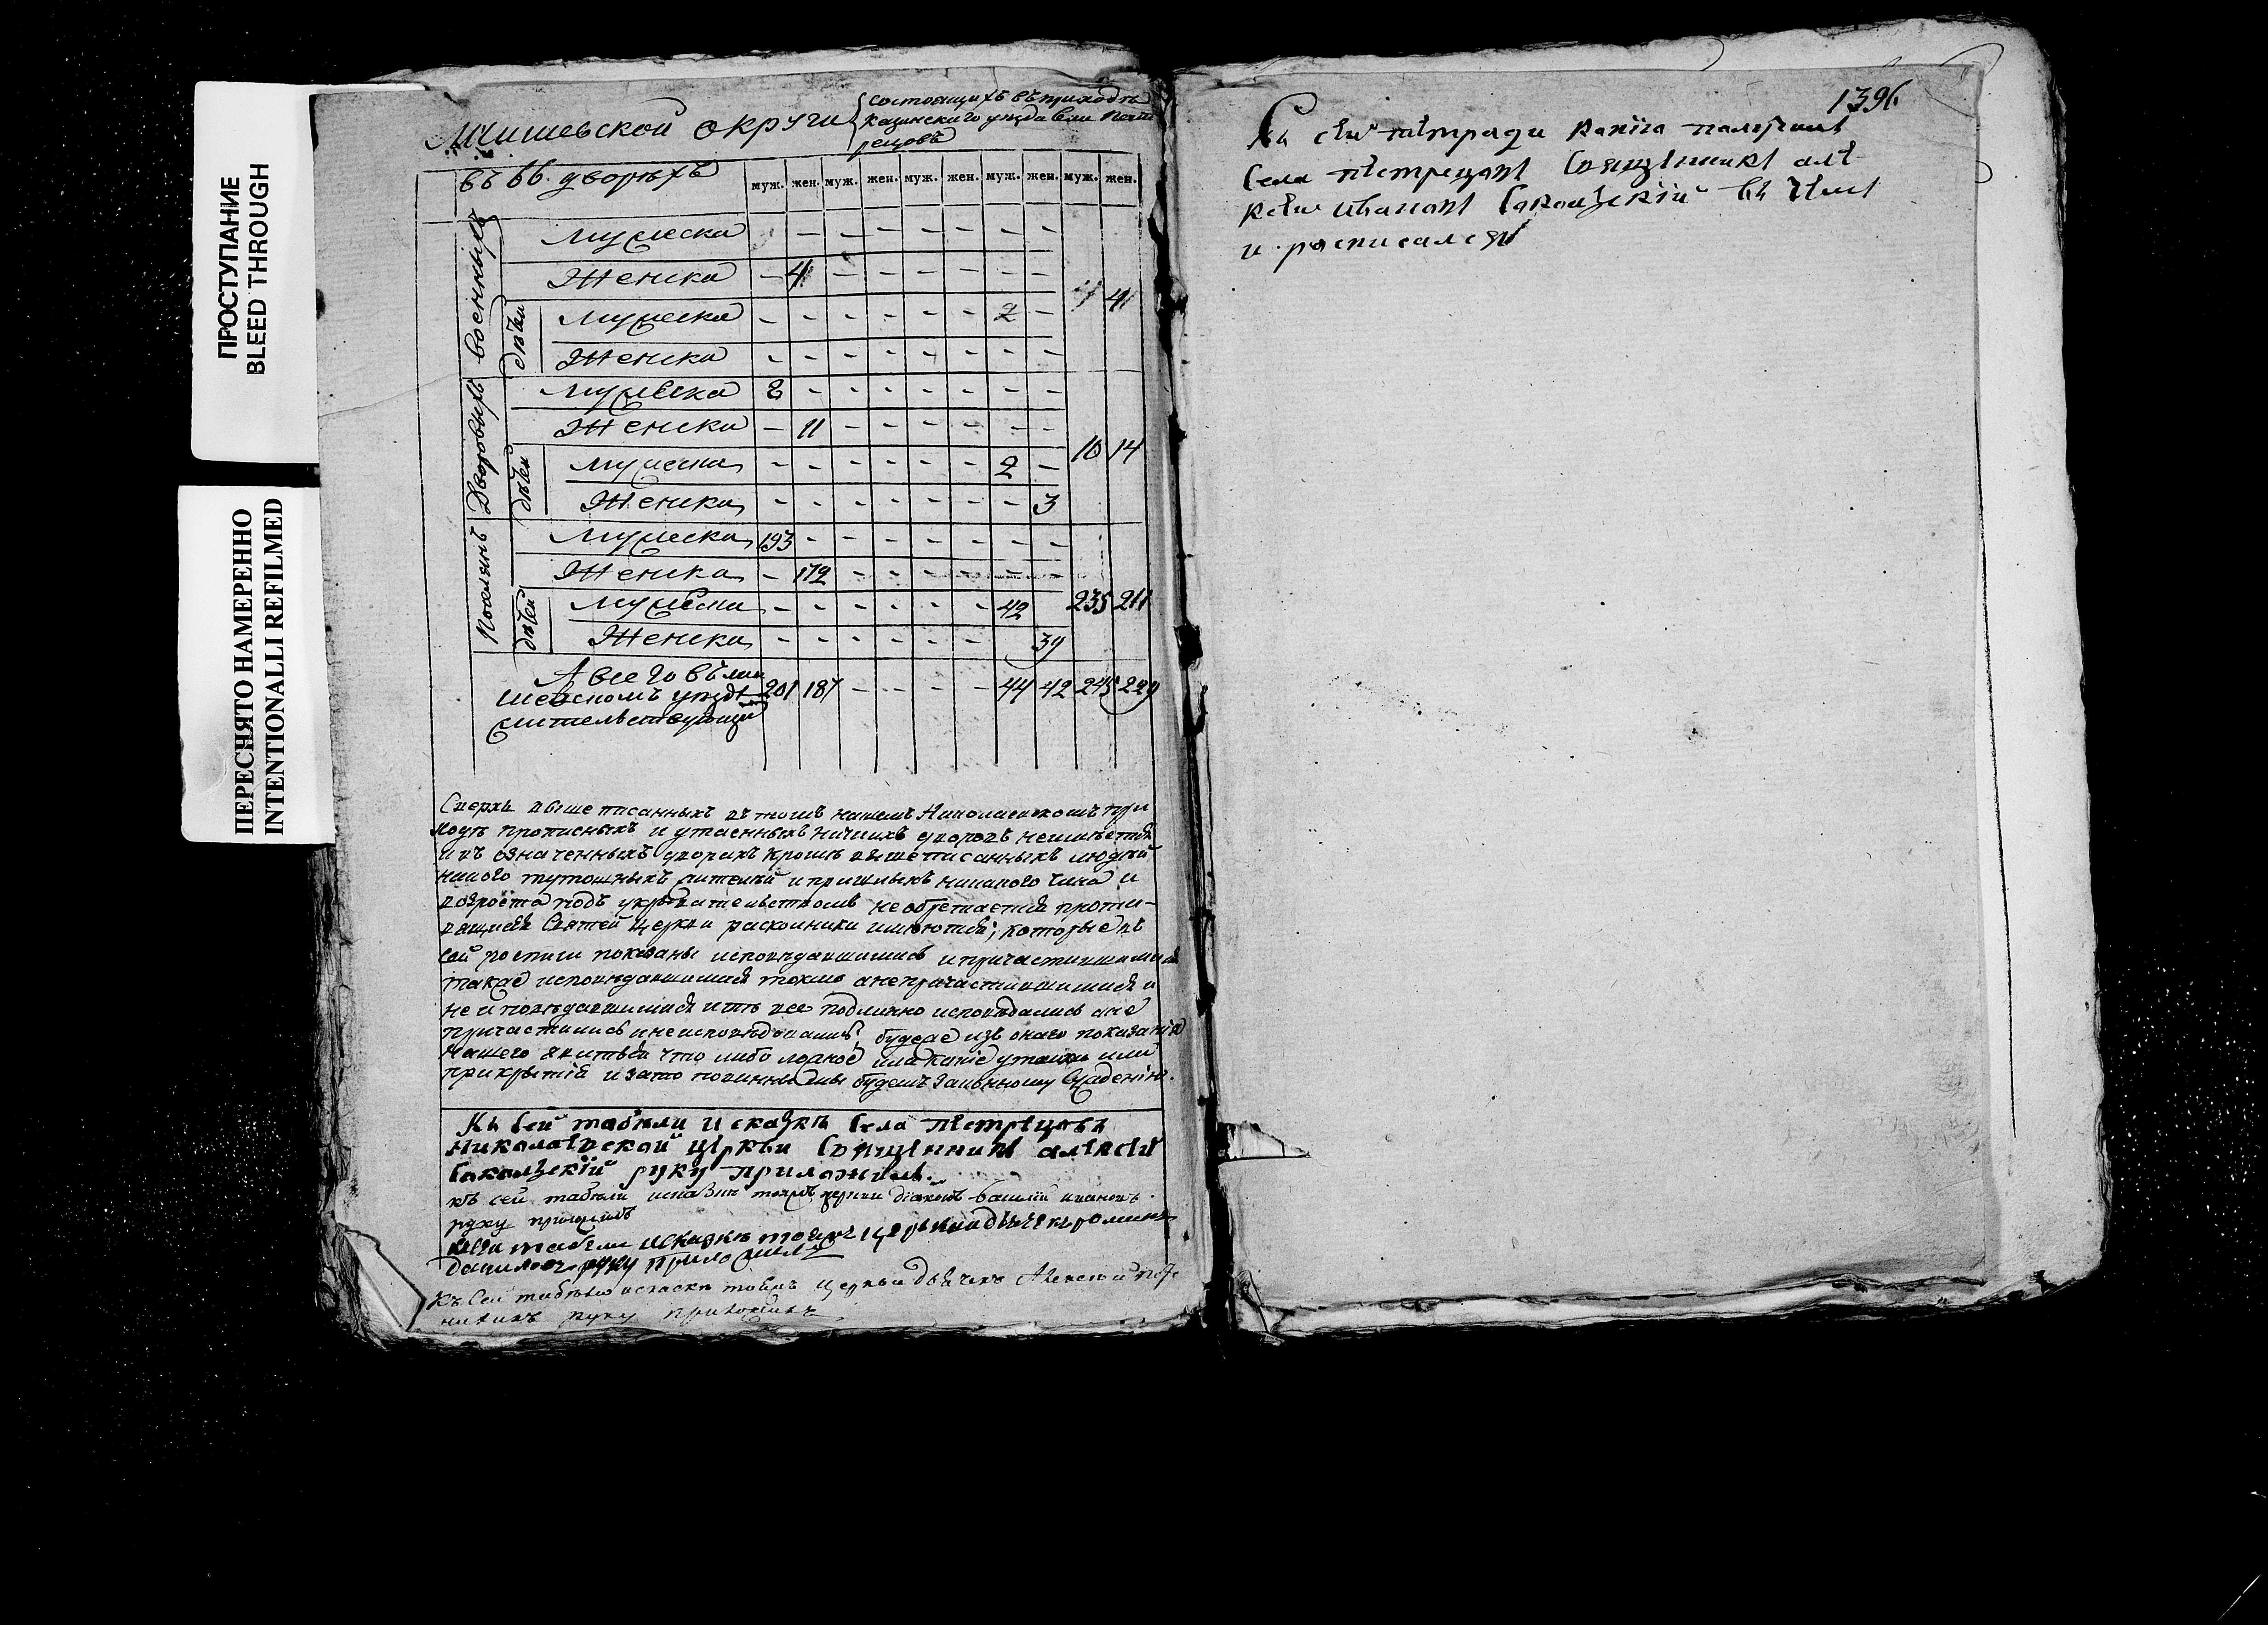 ПРОСТУПАНИЕ
BLEED THROUGH
ПЕРЕСНЯТО НАМЕРЕННО
INTENTIONALLI REFILMED
округи
состоящихъ въ приходѣ
казанскаго уѣзда
въ 66. дворѣхъ
муж. жен. муж. жен. муж. жен. муж. жен. муж. жен.
военныхъ
Мужеска - - - - - - -
Женска - 4 - - - - - -
4 4
дѣтей
Мужеска - - - - - - 2 -
Женска - - - - - - - -
Дворовыхъ
Мужеска 8 - - - - - - -
Женска - 11 - - - - - -
10 14
дѣтей
Мужеска - - - - - - 2 -
Женска - - - - - - - 3
Мужеска 193 - - - - - - -
Женска - 172 - - - - - -
дѣтей
Мужеска - - - - - - 42 235 211
Женска - - - - - - 39
А всего въ
шевскомъ уѣздѣ 201 187 - - - - 44 42 245 229
жительствующихъ
Сверхъ выше писанныхъ въ томъ нашемъ Николаевскомъ при
ходѣ прописныхъ и утаенныхъ ничьихъ дворовъ неимѣется
и въ означенныхъ дворахъ кромѣ вышеписанныхъ людей
никого тутошныхъ жителей и пришлыхъ никакого чина и
возроста подъ укрывательствомъ необретается проти-
вящиеся Святей Церкви раскольники имеются, которые въ
сей росписи показаны исповѣдавшимись и причастившимися
также исповѣдавшимися токмо а непричастившимися и
не исповѣдавшимися и тѣ все подлинно исповѣдались а не
причастились и неисповѣдовались, будеже изъ онаго показания
нашего явитьца что либо ложное или какие утайки или
прикрытия и за то повинны мы будемъ законному суждению.
Къ сей табели и сказкѣ села Пестрецовъ
Николаевской церкви священникъ Алексей
Сокольский руку приложилъ.
къ сей табели и сказке тоежъ церкви диаконъ Василий Ивановъ
руку приложилъ
табели и сказке тоежъ церкви дьячекъ
руку приложилъ
Къ сей табели и сказке тоежъ церкви дьячекъ Алексей
руку приложилъ
1396
Къ сей тетради копию получилъ
села Пестрецовъ священникъ Але
ксей Ивановъ Сокольский въ чемъ
и росписался